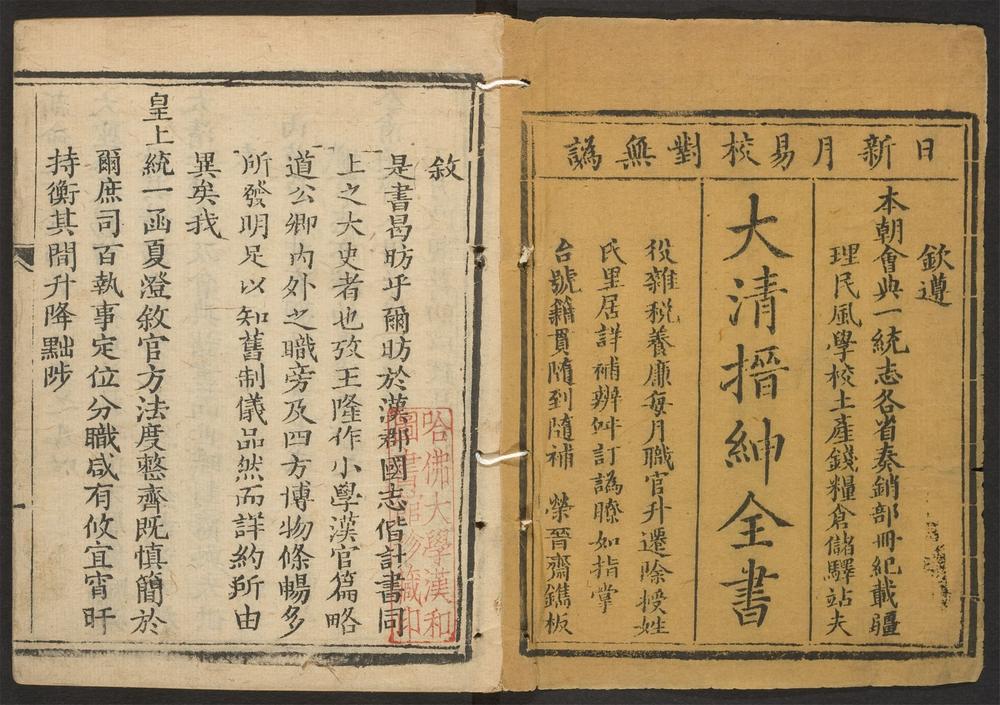 日新月易校對無譌
欽遵
本朝會典一統志各省奏銷部冊紀載疆
理民風學校土產錢糧倉儲驛站夫
大清搢紳全書
役雜稅養廉每月職官升遷除授姓
氏里居詳補辨舛訂譌瞭如指掌
台號籍貫隨到隨補 榮晉齋鐫板
敘
是書曷昉乎爾昉於漢郡國志偕計書同
上之大史者也攷王隆作小學漢官篇略
道公卿內外之職旁及四方博物條暢多
所發明足以知舊制儀品然而詳約所由
異矣我
皇上統一函夏澄敘官方法度整齊既慎簡於
爾庶司百執事定位分職咸有攸宜宵旰
持衡其間升降黜陟
哈佛大學漢和
圖書館珍藏印